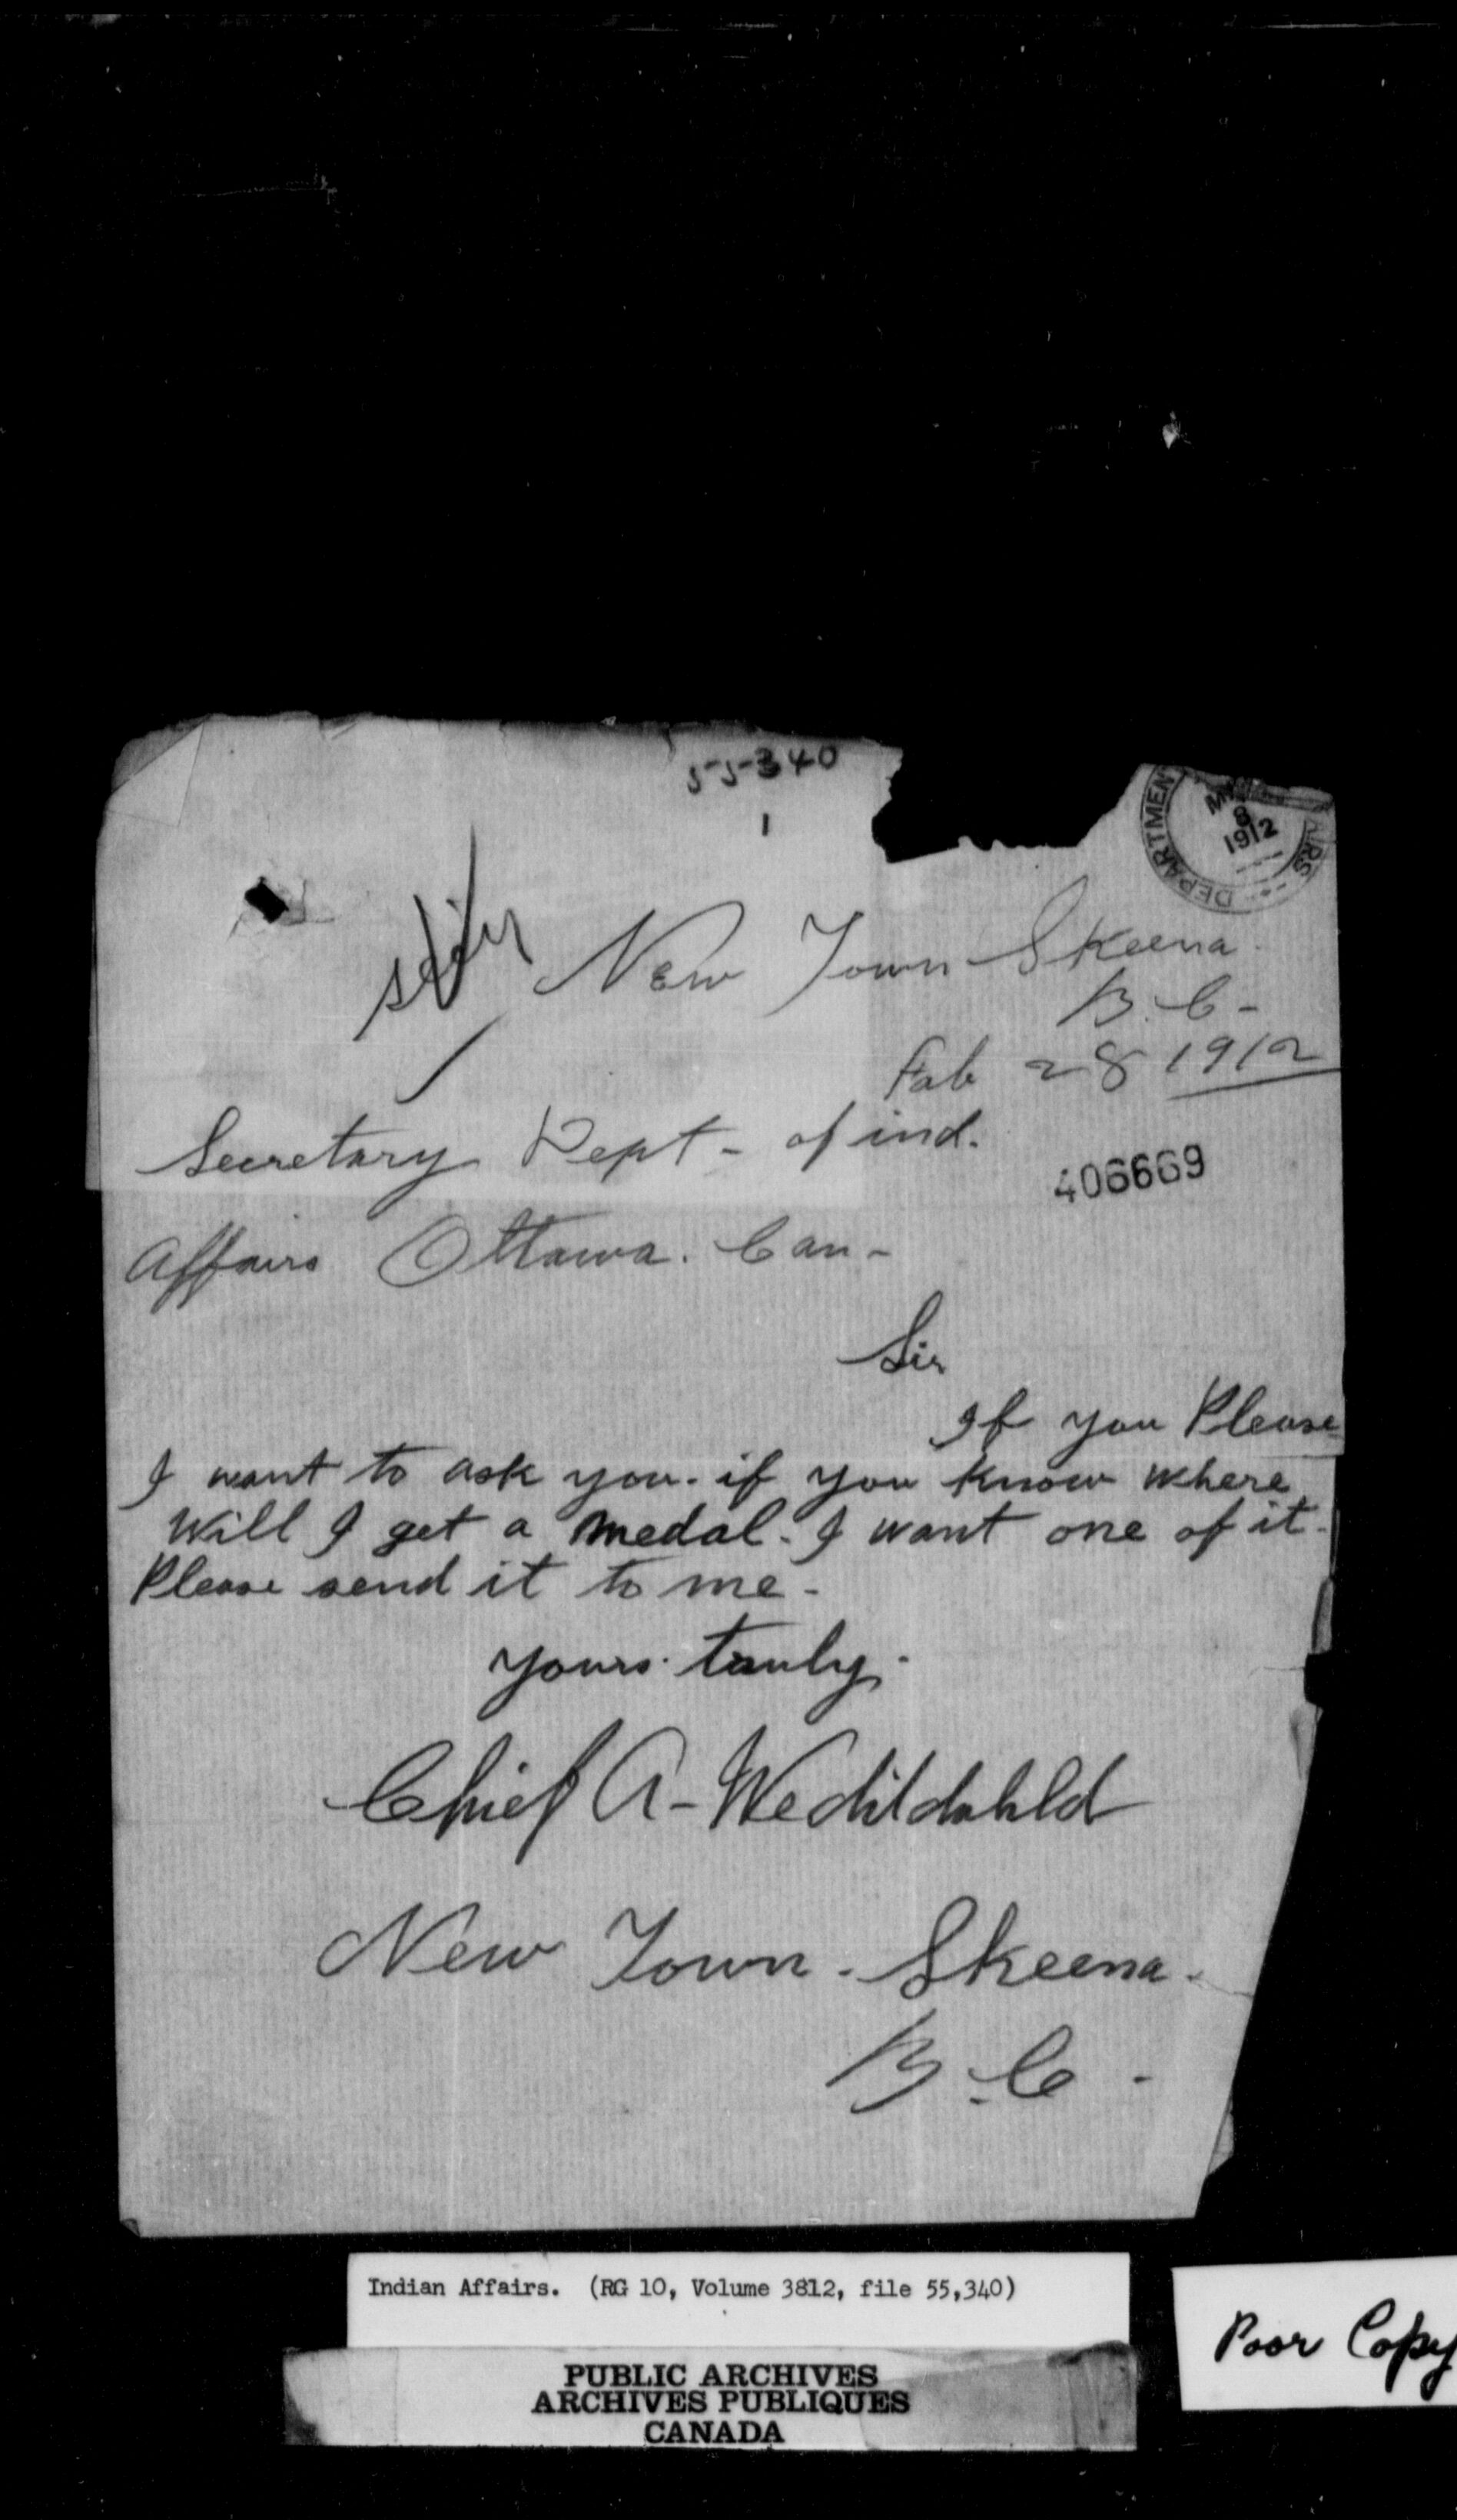 55340
1
DEPARTMENT
8
1912
AIRS
New Town Skeena.
B.C-
Feb 28 1912
Secretary Dept- of ind.
406669
Affairs Ottawa. Can-
Sir
If you Please
I want to ask you. if you know where
Will I get a medal. I want one of it.
Please send it to me-
yours. truly.
Chief A-Wedildahld
New Town. Skeena.
B.C.
Indian Affairs. (RG 10, Volume 3812, file 55,340)
Poor Copy
PUBLIC ARCHIVES
ARCHIVES PUBLIQUES
CANADA